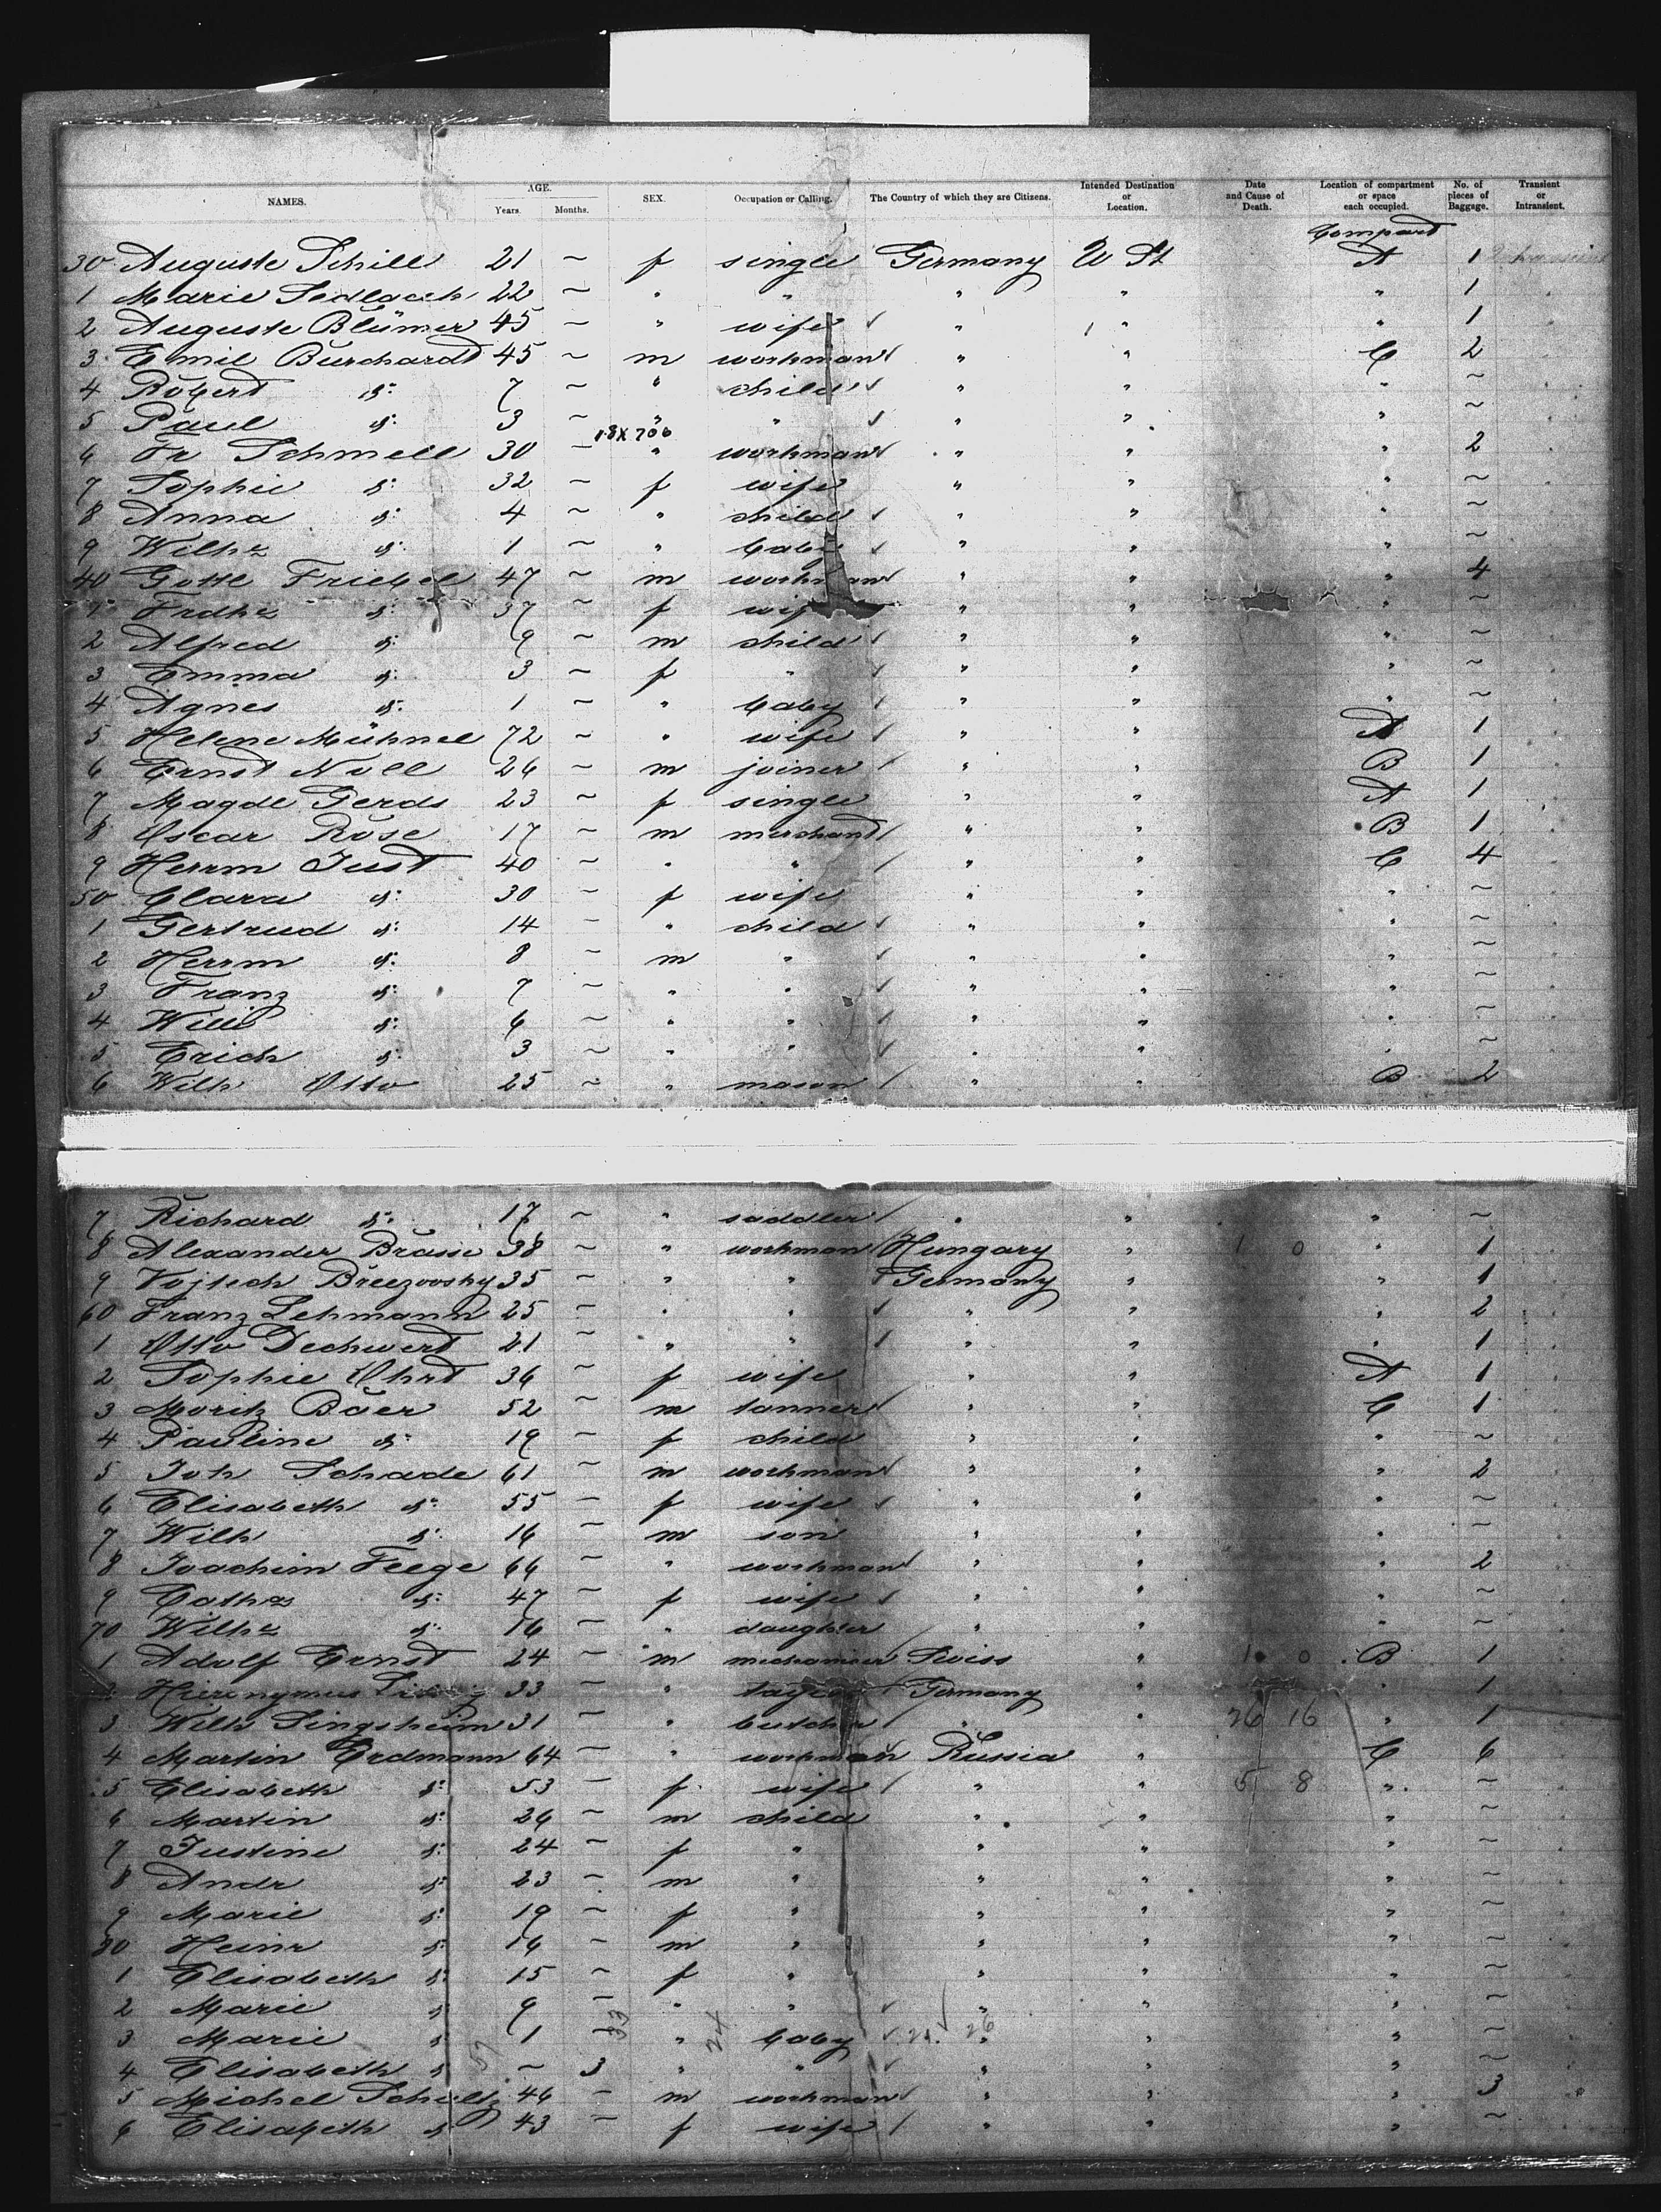 NAMES. AGE. Years. Months. SEX. Occupation or Calling. The Country of which they are Citizens. Intended Destination or Location. Date and Cause of Death. Location of compartment or space each occupied. No. of pieces of Baggage. Transient or Intransient.
Compart
30 Auguste Schill 21 ~ f single Germany U St A 1
1 Marie Sedlacek 22 ~ " " " " " 1
2 Auguste Blümer 45 ~ " wife " " " 1
3 Emil Burchardt 45 ~ m workman " " C 2
4 Robert do: 7 ~ " child " " " ~
5 Paul do: 3 ~ " " " " " ~
1-8X706
6 Fr Schmell 30 ~ " workman " " " 2
7 Sophie do: 32 ~ f wife " " " ~
8 Anna do: 4 ~ " child " " " ~
9 Wilhe do: 1 ~ " baby " " " ~
40 Gottl Friebel 47 ~ m workman " " " 4
1 Frdke do: 37 ~ f wif " " " ~
2 Alfred do: 9 ~ m child " " " ~
3 Emma do: 3 ~ f " " " " ~
4 Agnes do: 1 ~ " baby " " " ~
5 Helene Mühnel 72 ~ " wife " " A 1
6 Ernst Noll 26 ~ m joiner " " B 1
7 Magde Gerds 23 ~ f single " " A 1
8 Oscar Rose 17 ~ m merchant " " B 1
9 Herrm Just 40 ~ " " " " C 4
50 Clara do: 30 ~ f wife " " " ~
1 Gertrud do: 14 ~ " child " " " ~
2 Herrm do: 8 ~ m " " " " ~
3 Franz do: 7 ~ " " " " " ~
4 Willi do: 6 ~ " " " " " ~
5 Erich do: 3 ~ " " " " " ~
6 Wilh Otto 25 ~ " mason " " B 2
7 Richard do: 17 ~ " saddler " " " ~
8 Alexander Brassi 38 ~ " workman Hungary " 1 0 " 1
9 Vojtech Breezovsky 35 ~ " " Germany " " 1
60 Franz Lehmann 25 ~ " " " " " 2
1 Otto Dechwert 21 ~ " " " " " 1
2 Sophie Ohrt 36 ~ f wife " " A 1
3 Moritz Baer 52 ~ m tanner " " C 1
4 Pauline do: 19 ~ f child " " " ~
5 Joh Schade 61 ~ m workman " " " 2
6 Elisabeth do: 55 ~ f wife " " " ~
7 Wilh do: 16 ~ m son " " " ~
8 Joachim Feege 66 ~ " workman " " " 2
9 Catha do: 47 ~ f wife " " " ~
70 Wilhe do: 16 ~ " daughter " " " ~
1 Adolf Ernst 24 ~ m Swiss " 1 0 B 1
2 Hieronymus 33 ~ " Germany " " 1
3 Wilh Singsheim 31 ~ " butcher " " 26 16 " 1
4 Martin Erdmann 64 ~ " workman Russia " C 6
5 Elisabeth do: 53 ~ f wife " " 5 8 " ~
6 Martin do: 26 ~ m child " " " ~
7 Justine do: 24 ~ f " " " " ~
8 Andr do: 23 ~ m " " " " ~
9 Marie do: 19 ~ f " " " " ~
80 Heinr do: 16 ~ m " " " " ~
1 Elisabeth do: 15 ~ f " " " " ~
2 Marie do: 9 ~ " " " " " ~
3 Marie do: 1 ~ 33 " 24 baby 21. 26 " " " ~
4 Elisabeth do: 57 ~ 3 " " " " " ~
5 Michel Schultz 46 ~ m workman " " " 3
6 Elisabeth do 43 ~ f wife " " " ~